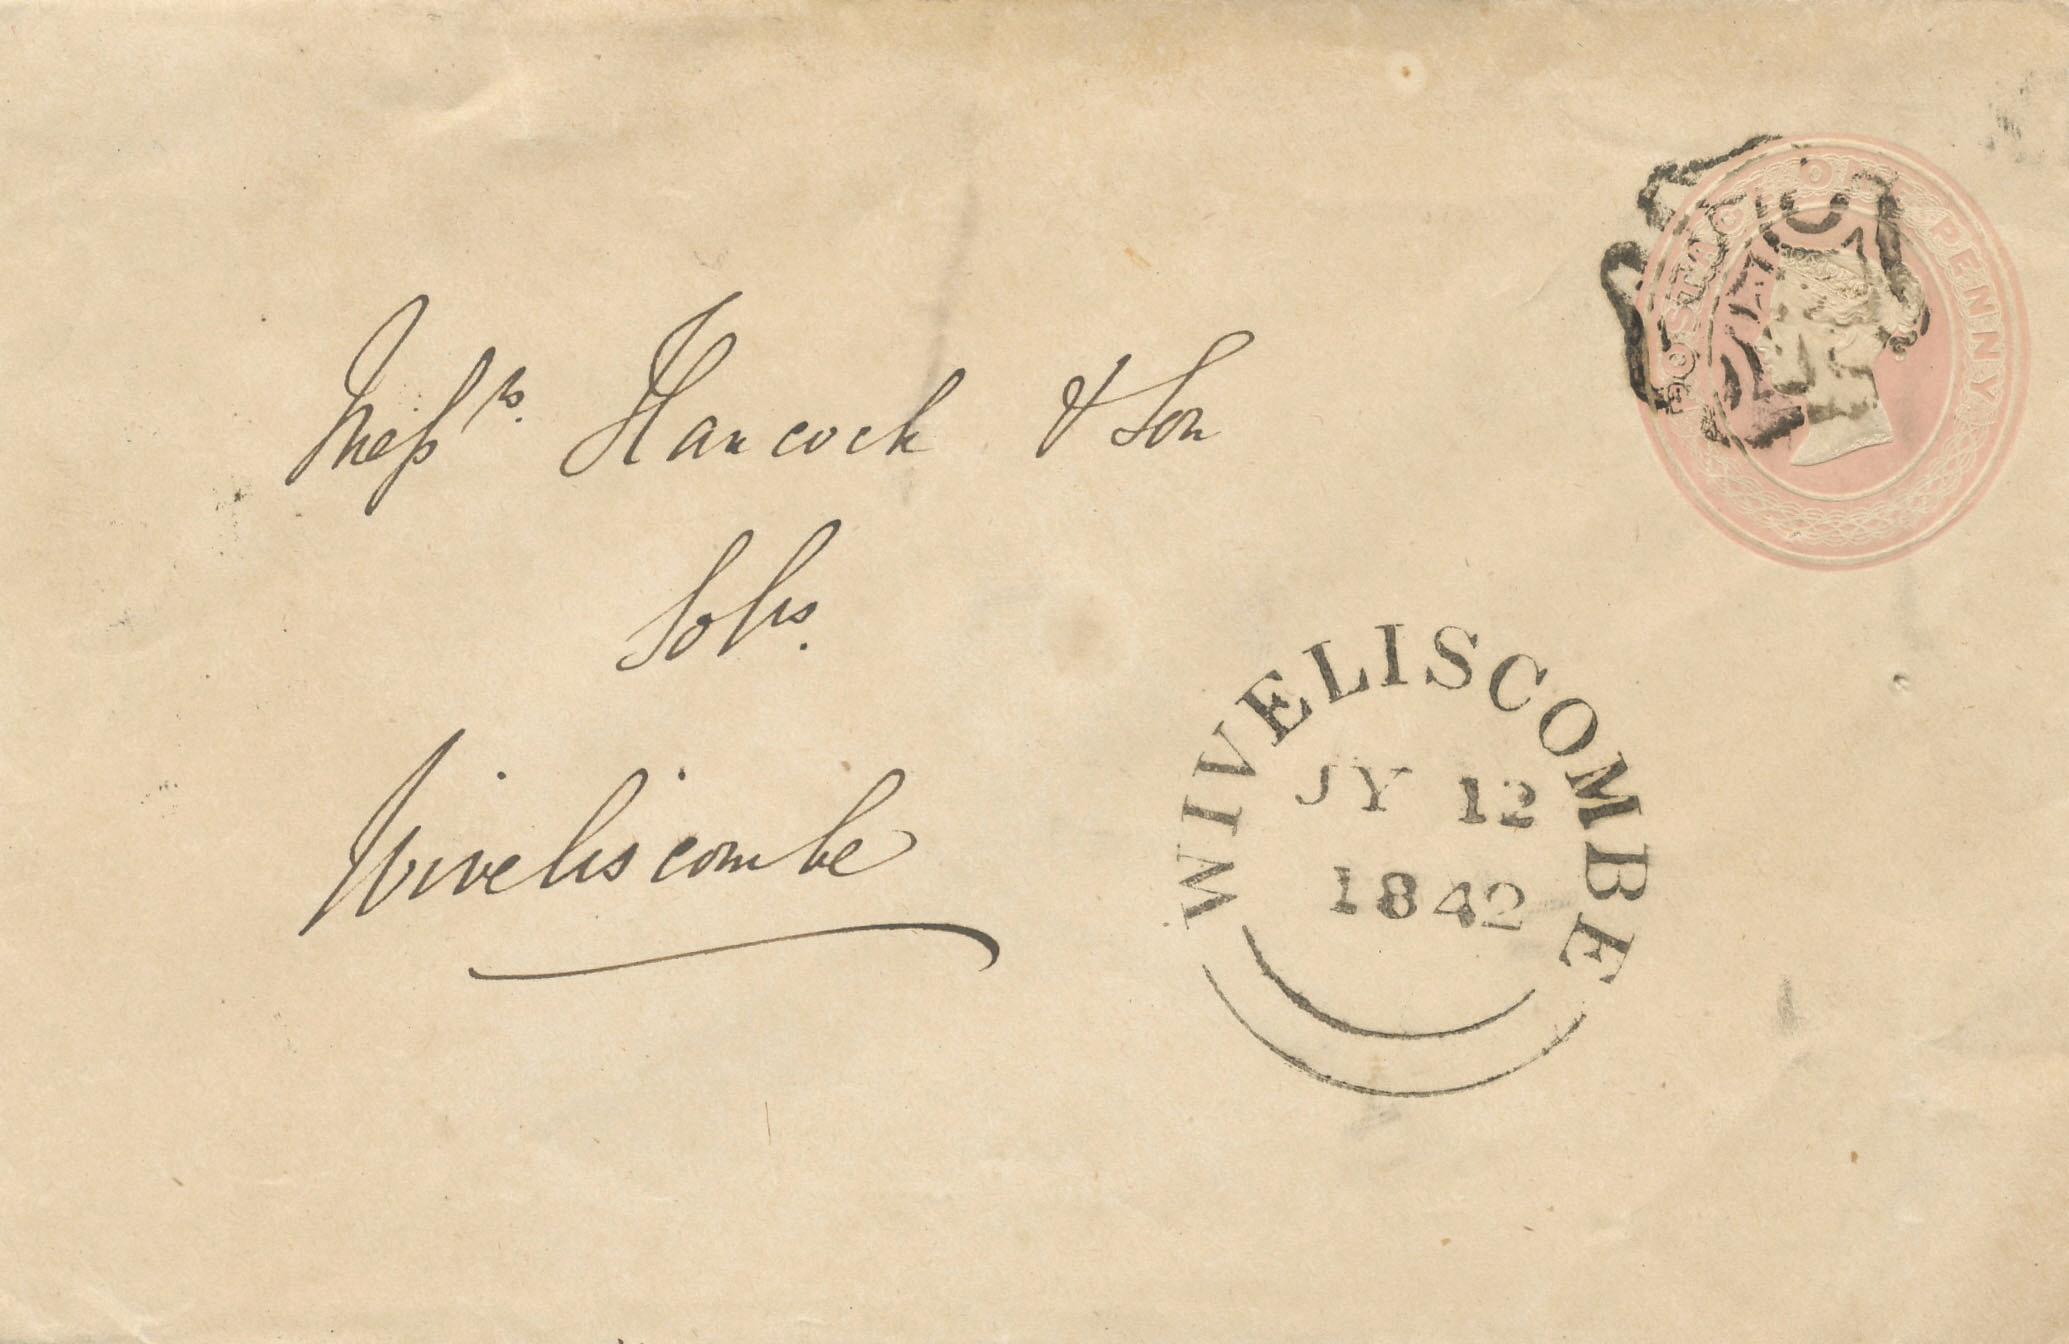 POSTAGE ONE PENNY
Messrs. Hancock & Son
Solrs.
Wiveliscombe
WIVELISCOMBE
JY 12
1842